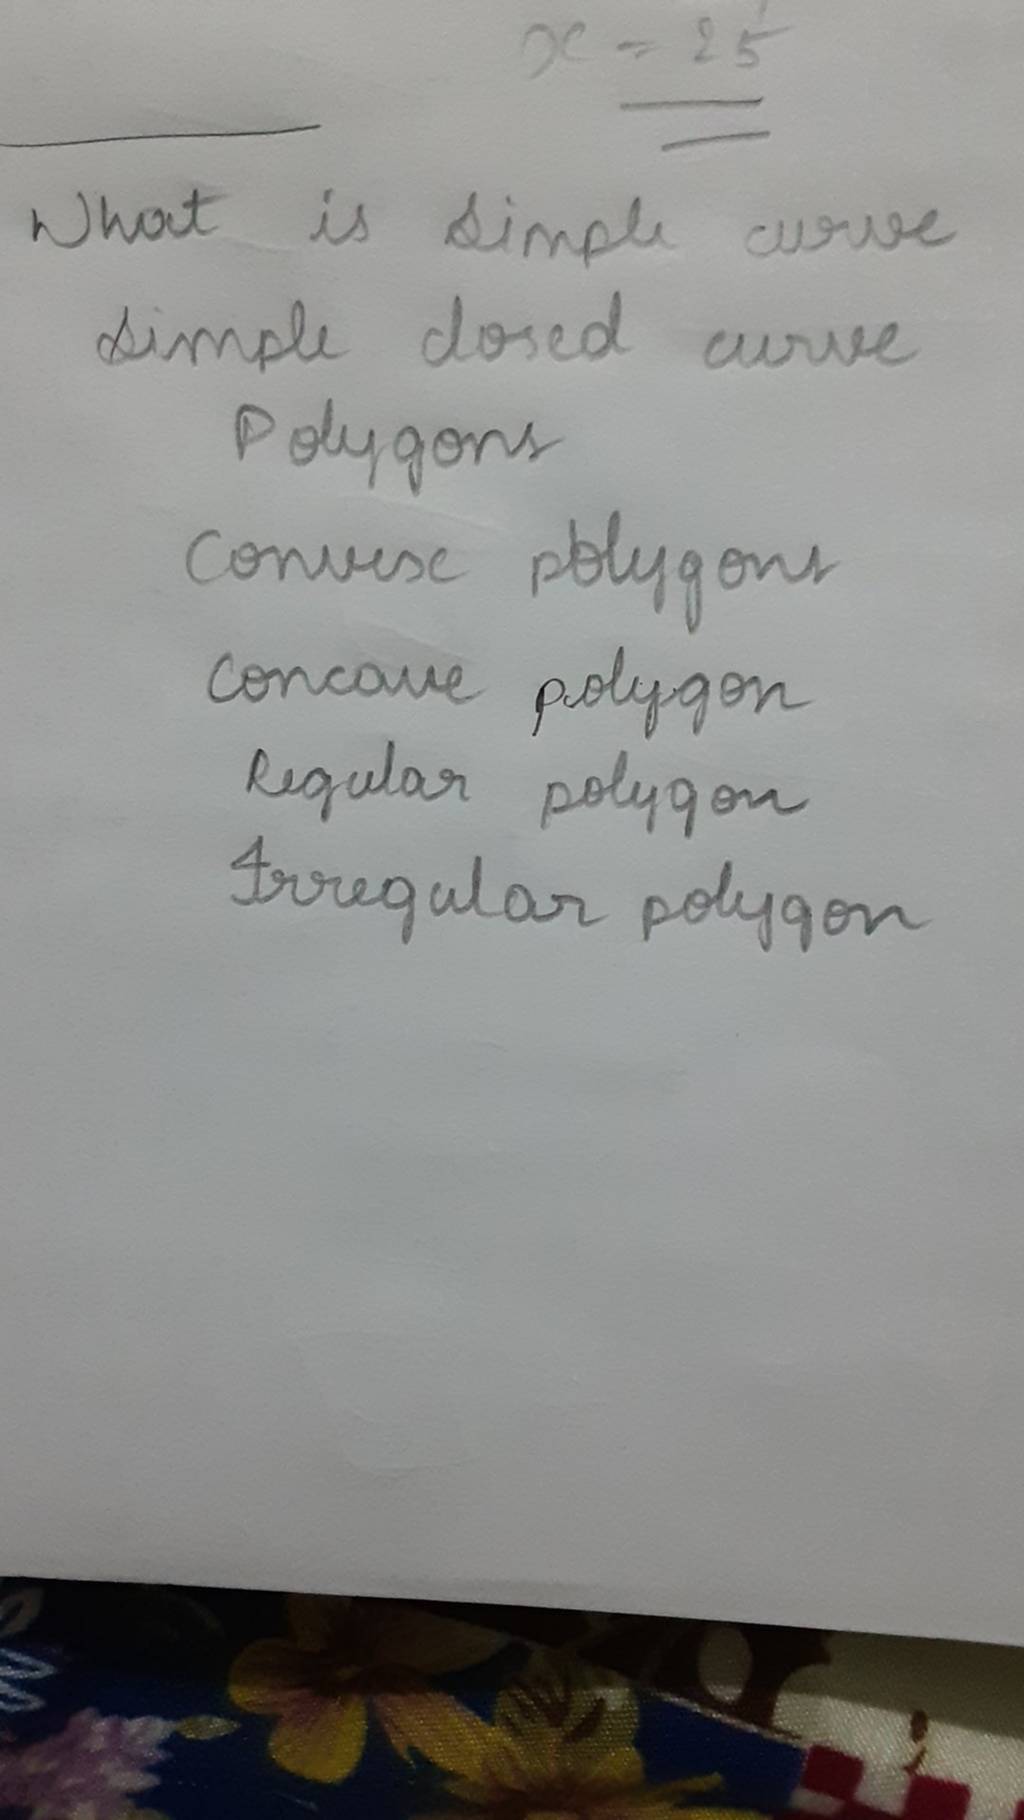 x = 25
What is simple curve
simple closed curve
Polygons
Convex polygons
Concave polygon
Regular polygon
Irregular polygon